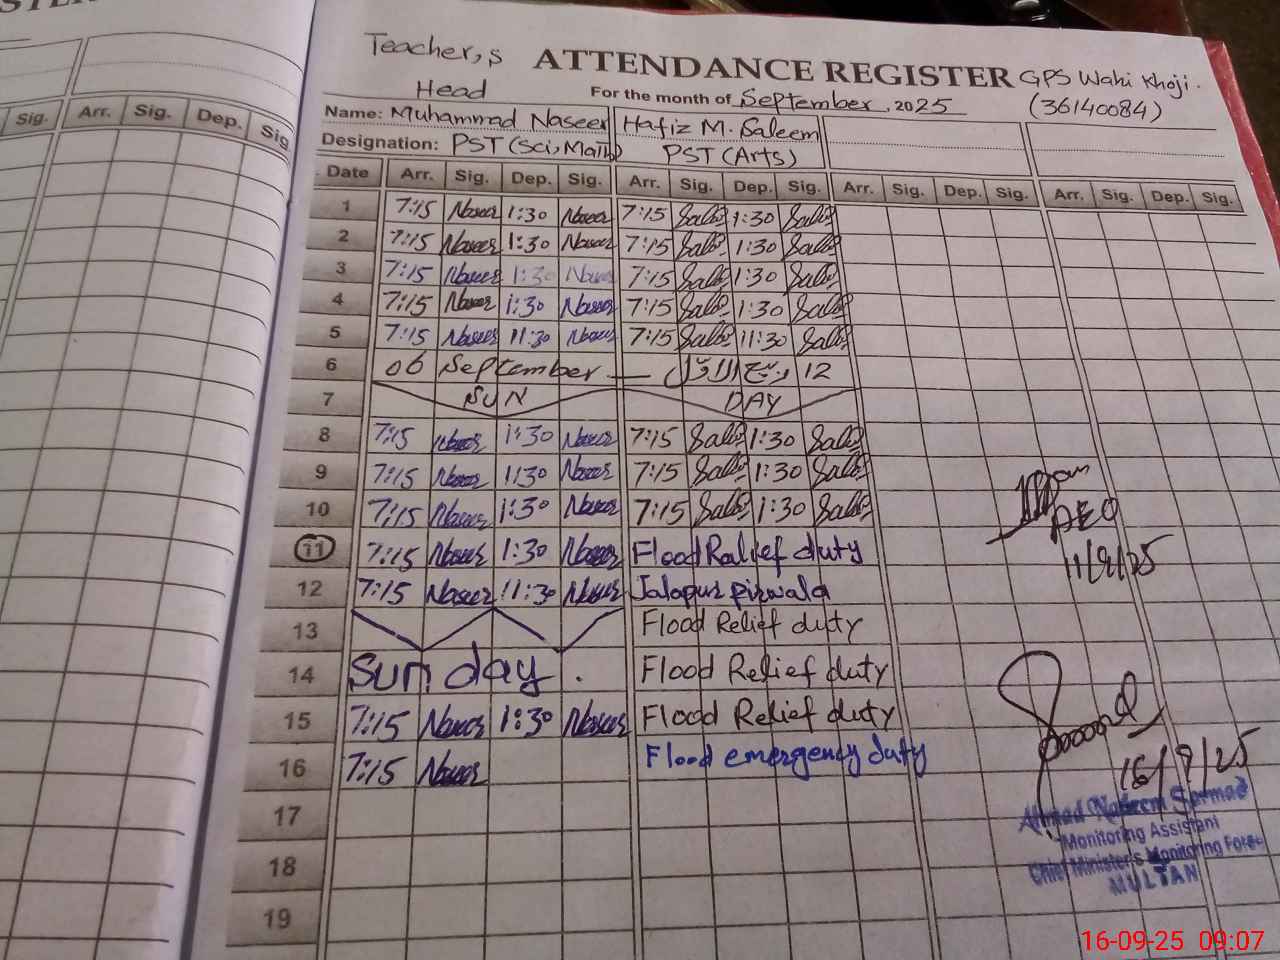 Teacher,s ATTENDANCE REGISTER GPS Wahi Khoji.
Head For the month of September, 2025 (36140084)
Name: Muhammad Naseer Hafiz M. Saleem
Designation: PST (Sci, Math) PST (Arts)
Sig. Arr. Sig. Dep. Sig
Date Arr. Sig. Dep. Sig. Arr. Sig. Dep. Sig. Arr. Sig. Dep. Sig. Arr. Sig. Dep. Sig.
1 7:15 Naseer 1:30 Naseer 7:15 1:30
2 7:15 Naseer 1:30 Naseer 7:15 1:30
3 7:15 Naseer 1:30 Naseer 7:15 1:30
4 7:15 Naseer 1:30 Naseer 7:15 1:30
5 7:15 Naseer 11:30 Naseer 7:15 11:30
6 06 September — 12 ربیع الاول
7 SUN DAY
8 7:15 Naseer 1:30 Naseer 7:15 1:30
9 7:15 Naseer 1:30 Naseer 7:15 1:30
10 7:15 Naseer 1:30 Naseer 7:15 1:30
11 7:15 Naseer 1:30 Naseer Flood Ralief duty
12 7:15 Naseer 11:30 Naseer Jalapur pirwala
13 Flood Relief duty
14 Sunday. Flood Relief duty
15 7:15 Naseer 1:30 Naseer Flood Relief duty
16 7:15 Naseer Flood emergency duty
17
18
19
AEO
11/9/25
16/9/25
Ahmad Nadeem Sarmad
Monitoring Assistant
Chief Minister's Monitoring Force
MULTAN
16-09-25 09:07